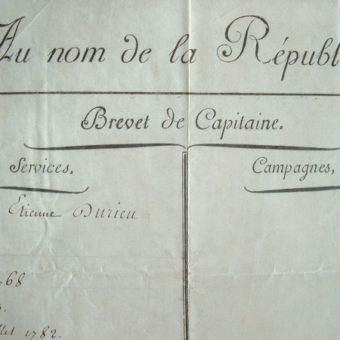 Au nom de la Républ
Brevet de Capitaine.
Services.
Campagnes,
Etienne Durieu
68
llet 1782.